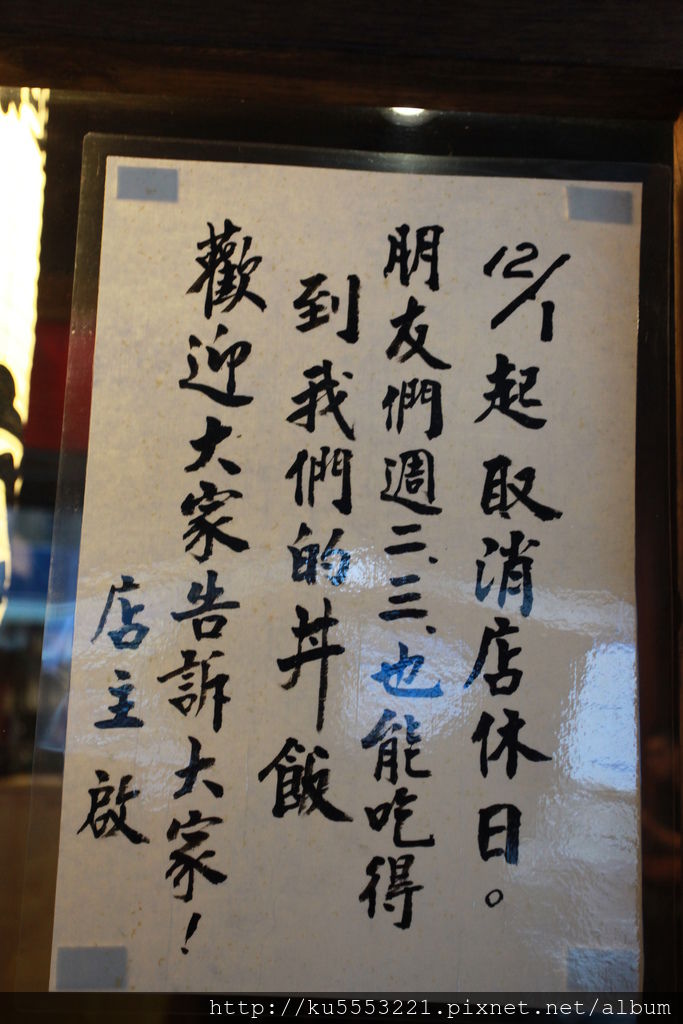 12/1起取消店休日。
朋友們週二、三、也能吃得
到我們的丼飯
歡迎大家告訴大家！
店主 啟
http://ku5553221.pixnet.net/album